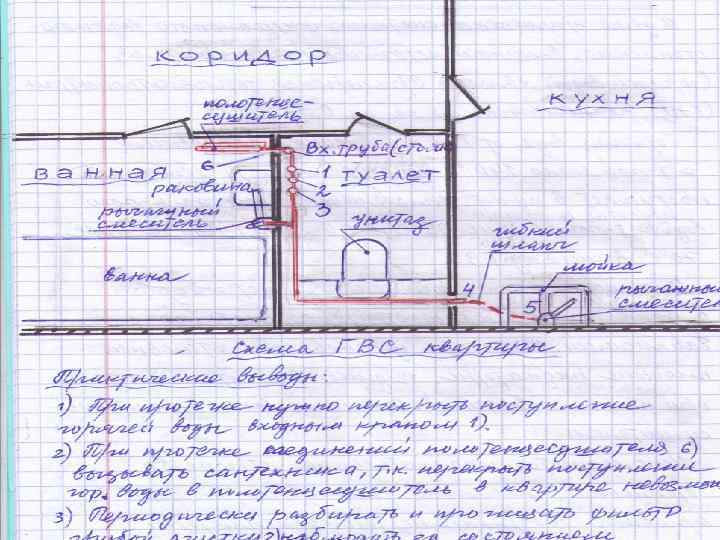 коридор
кухня
полотенце-
сушитель
Вх.труба(стояк
6
ванная
1
туалет
раковина
2
рычажный
смеситель
3
унитаз
гибкий
шланг
мойка
ванна
4
рычажный
смесител
5
Схема ГВС квартиры
Практические выводы:
1) При протечке нужно перекрыть поступление
горячей воды входным краном 1).
2) При протечке соединений полотенцесушителя 6)
вызывать сантехника, т.к. перекрыть поступлени
гор. воды в полотенцесушитель в квартире невозмож
3) Периодически разбирать и прочищать фильтр